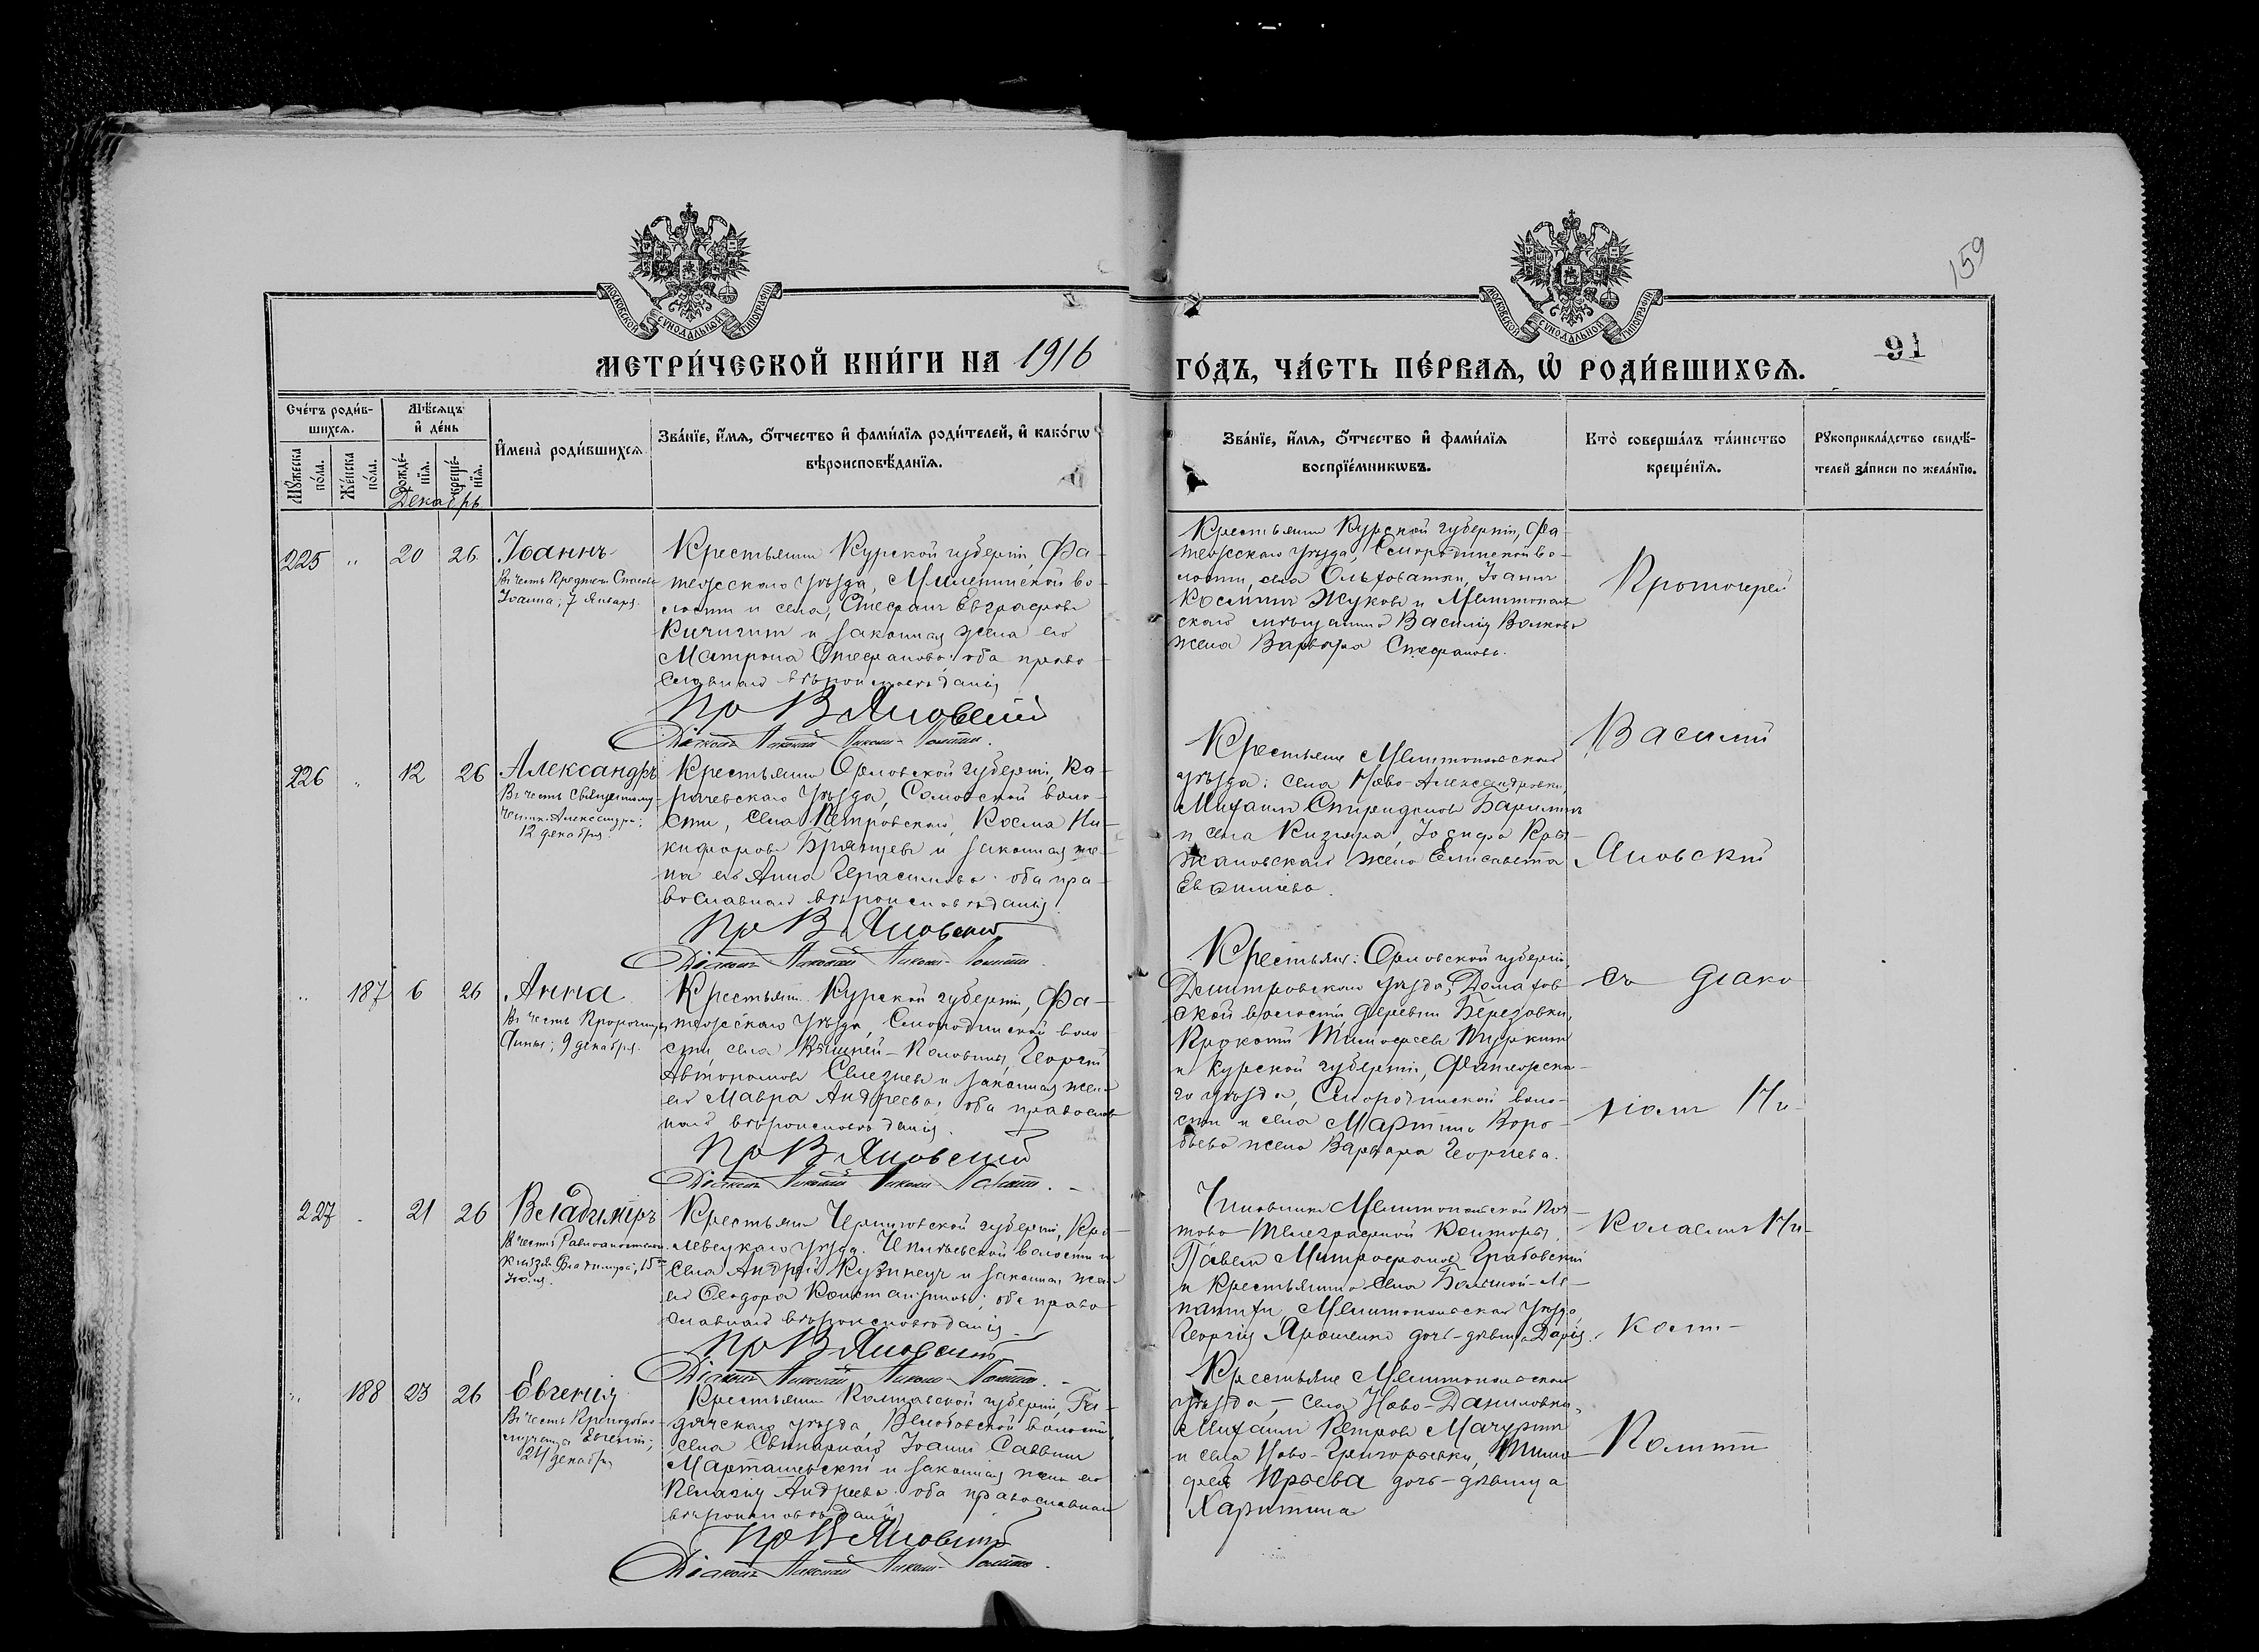 159
МОСКОВСКОЙ СѴНОДАЛЬНОЙ ТИПОГРАФІИ
МОСКОВСКОЙ СѴНОДАЛЬНОЙ ТИПОГРАФІИ
МЕТРИ́ЧЕСКОЙ КНИ́ГИ НА 1916
ГО́ДЪ, ЧА́СТЬ ПЕ́РВАѦ, Ѡ҆ РОДИ́ВШИХСѦ.
91
Сче́тъ роди́в-
шихсѧ.
Мꙋ́жеска
по́ла.
Же́нска
по́ла.
Мѣ́сѧцъ
и҆ де́нь
рожде́-
нїѧ.
креще́-
нїѧ.
Декабрь
И҆мена̀ роди́вшихсѧ
Зва́нїе, и҆́мѧ, ѻ҆́тчество и҆ фами́лїѧ роди́телей, и҆ како́гѡ
вѣроисповѣ́данїѧ.
Зва́нїе, и҆́мѧ, ѻ҆́тчество и҆ фами́лїѧ
воспрїе́мникѡвъ.
Кто̀ соверша́лъ та́инство
креще́нїѧ.
Рꙋкоприкла́дство свидѣ́-
телей за́писи по жела́нїю.
225 " 20 26
Іоаннъ
Въ честь Предтечи Спасова
Іоанна; 7 Января.
Крестьянинъ Курской губерніи, Фа-
тежскаго уѣзда, Миленинской во-
лости и села, Стефанъ Евграфовъ
Кичигинъ и законная жена его
Матрона Стефанова; оба право-
славнаго вѣроисповѣданія
Пр В Яновский
Діаконъ Николай Николо-
Крестьянинъ Курской губерніи, Фа-
тежскаго уѣзда, Смородинской во-
лости, села Ольховатки, Іоаннъ
Косминъ Жуковъ и Мелитополь-
скаго мѣщанина Василія Волкова
жена Варвара Стефанова.
Протоіерей
226 " 12 26
Александръ
Въ честь священному-
ченика Александра;
12 декабря
Крестьянинъ Орловской губерніи, Ка-
рачевскаго уѣзда, Самовской воло-
сти, села Петровскаго, Косма Ни-
кифоровъ Брянцевъ и законная же-
на его Анна Герасимова; оба пра-
вославнаго вѣроисповѣданія.
Пр В Яновский
Діаконъ Николай Николо-
Крестьяне Мелитопольскаго
уѣзда: села Ново-Александровки,
Михаилъ Спиридоновъ
и села Кизіяра, Іосифа Кры-
жановскаго жена Елисавета
Евфиміева.
Василій
Яновскій
" 187 6 26
Анна
Въ честь Пророчицы
Анны; 9 декабря.
Крестьянинъ Курской губерніи, Фа-
тежскаго уѣзда, Смородинской воло-
сти, села Георгій
Автономовъ Селезневъ и законная жена
его Мавра Андреева; оба православ-
наго вѣроисповѣданія.
Пр В Яновский
Діаконъ Николай Николо-
Крестьян: Орловской губерніи,
Дмитровскаго уѣзда, Домахов-
ской волости, деревни Березовки,
Прокопій Тимофеевъ
и Курской губерніи, Фатежска-
го уѣзда, Смородинской воло-
сти и села Мартина Воро-
бьева жена Варвара Георгіева.
съ діако-
номъ Ни-
227 " 21 26
Владиміръ
Въ честь Равноапостольн.
Князя Владиміра, 15
Іюля.
Крестьянинъ Черниговской губерніи, Кро-
левецкаго уѣзда, волости и
села Андрей Кузнецъ и законная жена
его Ѳеодора Константинова; оба право-
славнаго вѣроисповѣданія
Пр В Яновский
Діаконъ Николай Николо-
Чиновникъ Мелитопольской Поч-
тово-Телеграфной Конторы,
Павелъ Митрофановъ Грабовскій
и крестьянина села Большой-Ле-
патихи, Мелитопольскаго уѣзда,
Георгія Ярошенко дочь-дѣвица Дарія.
колаемъ Ни-
коли-
" 188 23 26
Евгенія
Въ честь Преподобно-
мученицы Евгеніи;
24 декабря
Крестьянинъ Полтавской губерніи, Га-
дячскаго уѣзда, волости,
села Свинарнаго, Іоаннъ Саввинъ
Марташевскій и законная жена его
Пелагія Андреева; оба православнаго
вѣроисповѣданія
Пр В Яновский
Діаконъ Николай Николо-
Крестьяне Мелитопольскаго
уѣзда, – села Ново-Даниловки,
Михаилъ Петровъ
и села Ново-Григорьевки, Тимо-
фея Юрьева дочь-дѣвица
Харитина